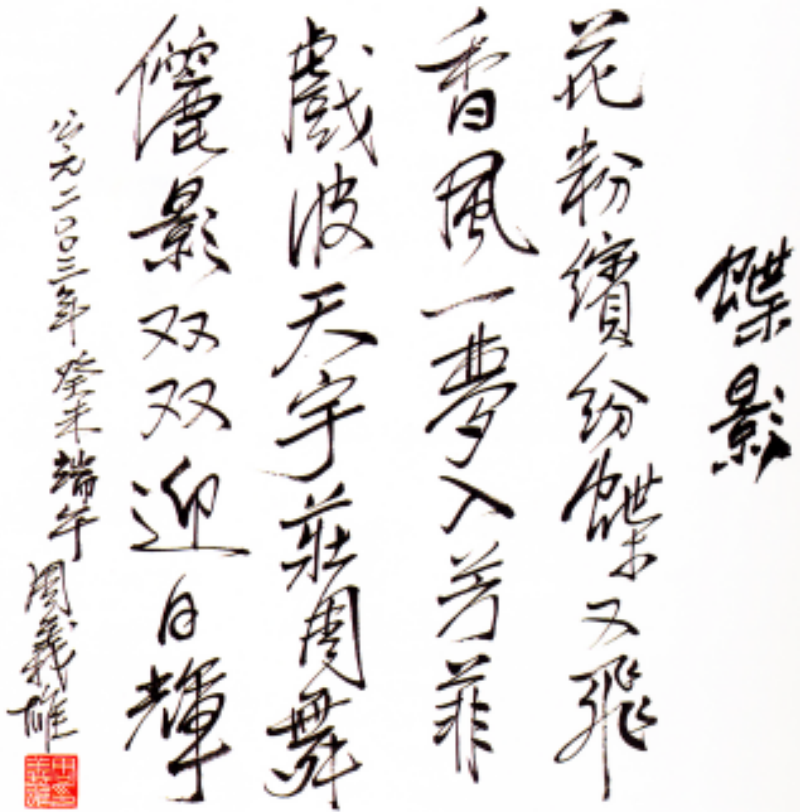 蝶影
花粉繽紛蝶又飛
香風一夢入芳菲
戲波天宇莊周舞
儷影双双迎日輝
公元二〇〇三年癸未端午
周義雄